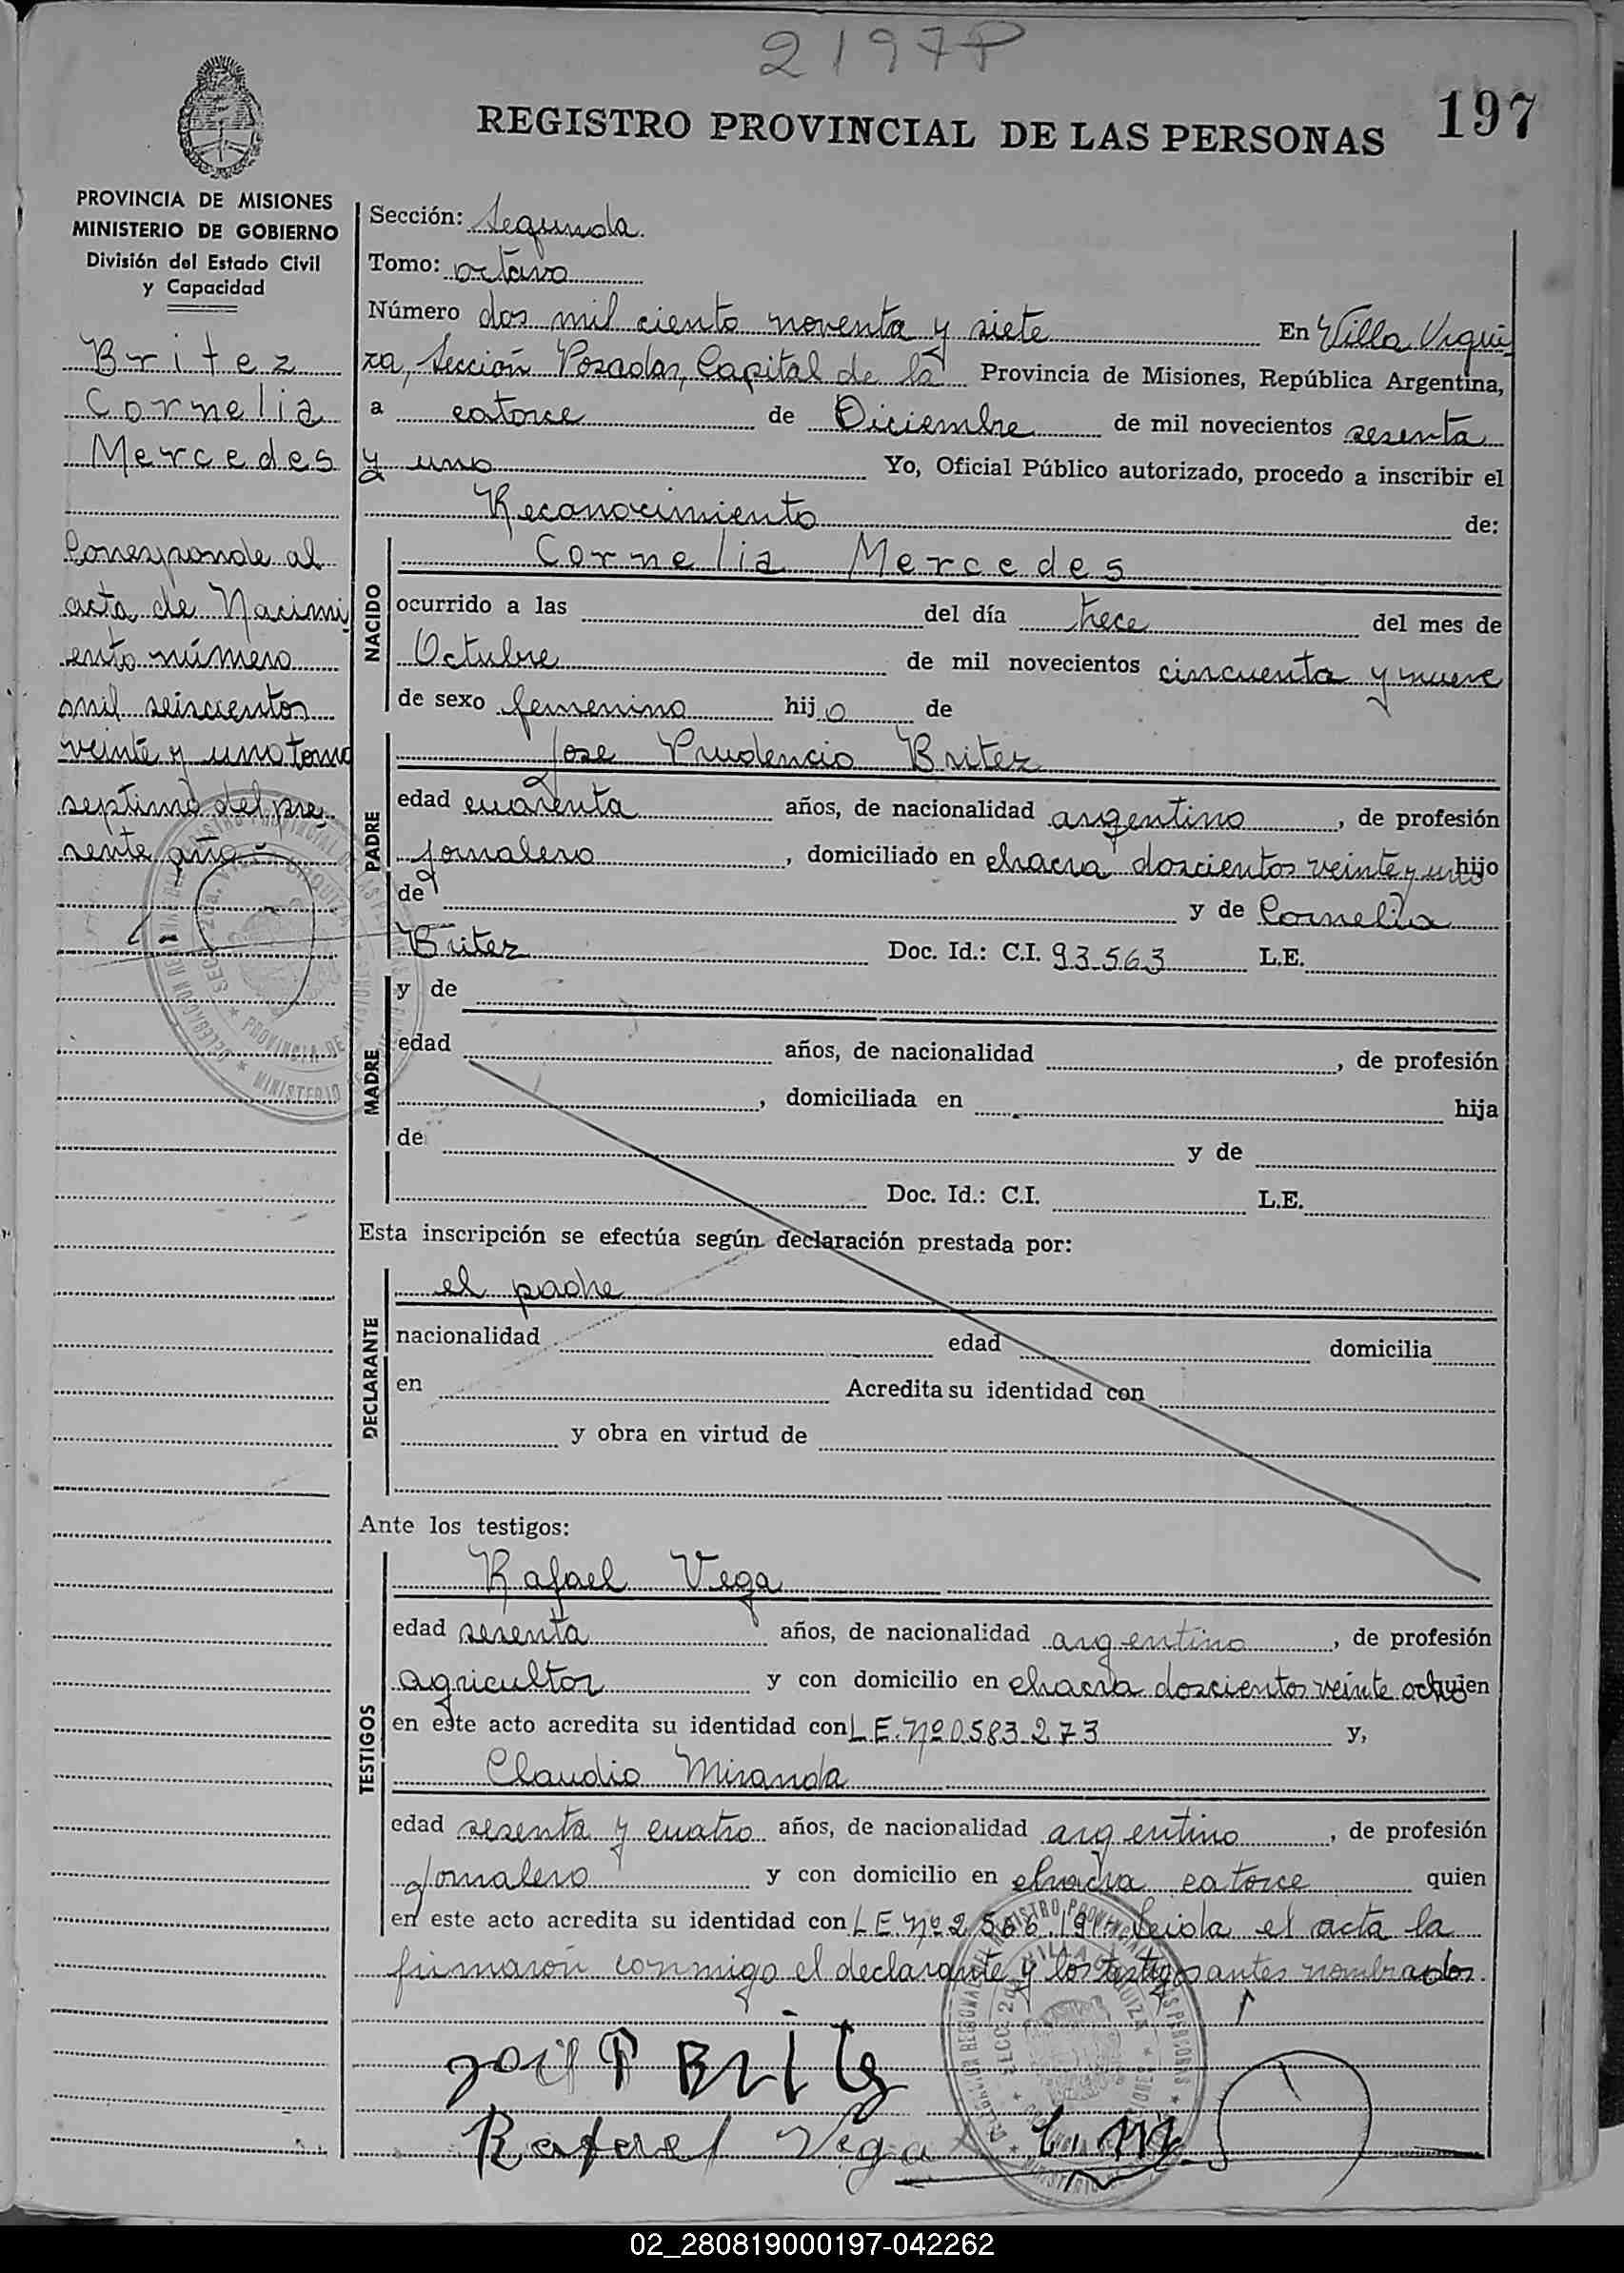 2197P
197
REGISTRO PROVINCIAL DE LAS PERSONAS
PROVINCIA DE MISIONES
MINISTERIO DE GOBIERNO
División del Estado Civil
y Capacidad
Britez
Cornelia
Mercedes
Corresponde al
acta de Nacimi
ento número
mil seiscientos
veinte y uno tomo
septimo del pre,
sente año
Sección: Segunda
Tomo: octavo
Número dos mil ciento noventa y siete En Villa Urqui
za, Sección Posadas, Capital de la Provincia de Misiones, República Argentina,
a catorce de Diciembre de mil novecientos sesenta
y uno Yo, Oficial Público autorizado, procedo a inscribir el
Reconocimiento de:
NACIDO
Cornelia Mercedes
ocurrido a las del día trece del mes de
Octubre de mil novecientos cincuenta y nueve
de sexo femenino hijo de
PADRE
Jose Prudencio Britez
edad cuarenta años, de nacionalidad argentino, de profesión
Jornalero, domiciliado en chacra doscientos veinte y uno hijo
de y de Cornelia
Britez Doc. Id.: C.I. 93.563 L.E.
MADRE
y de
edad años, de nacionalidad , de profesión
, domiciliada en hija
de y de
Doc. Id.: C.I. L.E.
Esta inscripción se efectúa según declaración prestada por:
DECLARANTE
el padre
nacionalidad edad domicilia
en Acredita su identidad con
y obra en virtud de
Ante los testigos:
TESTIGOS
Rafael Vega
edad sesenta años, de nacionalidad argentino, de profesión
agricultor y con domicilio en chacra doscientos veinte ocho quien
en este acto acredita su identidad con L.E. Nº 0.583.273 y,
Claudio Miranda
edad sesenta y cuatro años, de nacionalidad argentino, de profesión
Jornalero y con domicilio en chacra catorce quien
en este acto acredita su identidad con L E Nº 2.566.191- Leida el acta la
firmaron conmigo el declarante y los testigos antes nombrados.
José P Brite
Rafael Vega
02_280819000197-042262